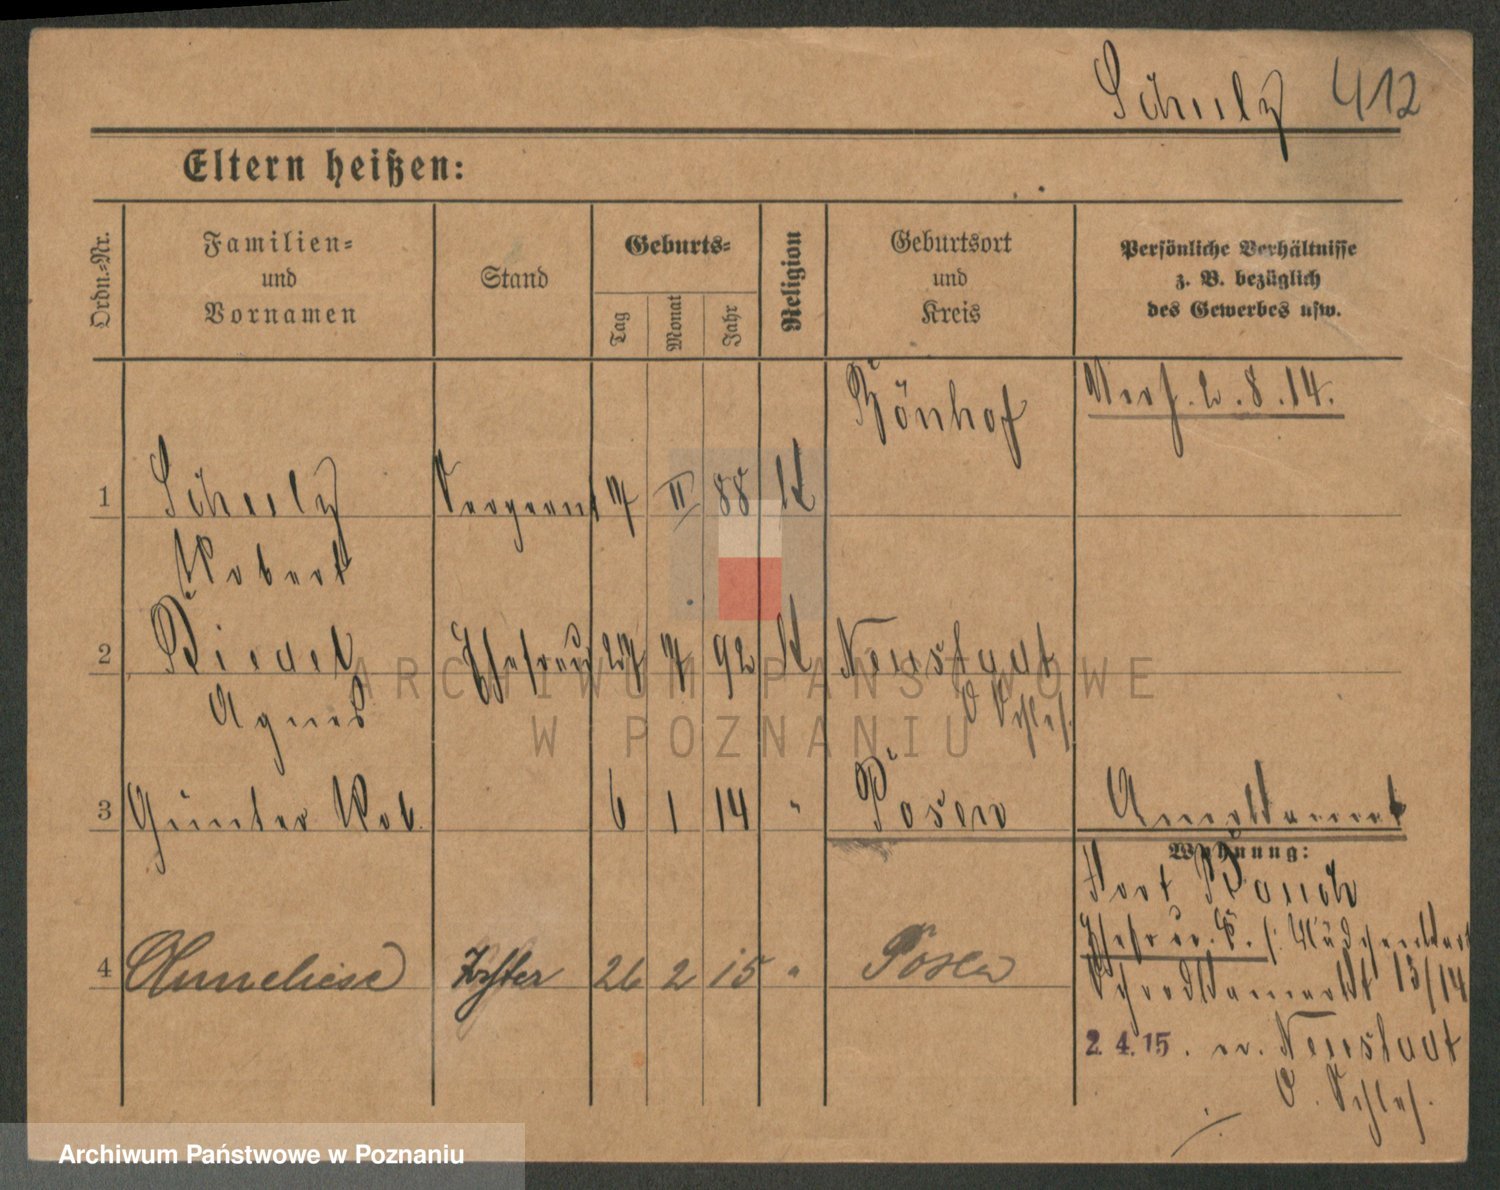 Schulz 412
Eltern heißen:
Ordn.-Nr.
Familien-
und
Vornamen
Stand
Geburts-
Tag
Monat
Jahr
Religion
Geburtsort
und
Kreis
Persönliche Verhältnisse
z. B. bezüglich
des Gewerbes usw.
2.8.14.
1 Schulz Sergeant 7 II 88
Robert
2 Riedel Ehefrau 27 7 92 Neustadt
Agnes O Schles.
3 Günter Rob. 6 1 14 " Posen
Wohnung:
Fort Rauch
Ehefrau
4 Anneliese Tochter 26 2 15 " Posen
13/14
2.4.15. n. Neustadt
O. Schles.
ARCHIWUM PAŃSTWOWE
W POZNANIU
Archiwum Państwowe w Poznaniu